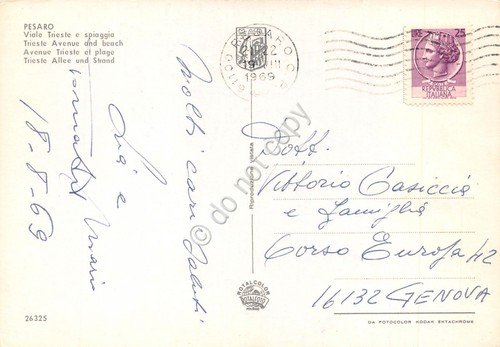 PESARO
Viale Trieste e spiaggia
Trieste Avenue and beach
Avenue Trieste et plage
Trieste Allee und Strand
Molti cari saluti
Lia e
Mario
18-8-69
26325
PESARO
61100
21-22
1969
LIRE 25
REPUBBLICA
ITALIANA
Riproduzione vietata
ROTALCOLOR
Dott.
Vittorio Casiccia
e Famiglia
Corso Europa 42
16132 GENOVA
DA FOTOCOLOR KODAK EKTACHROME
do not copy